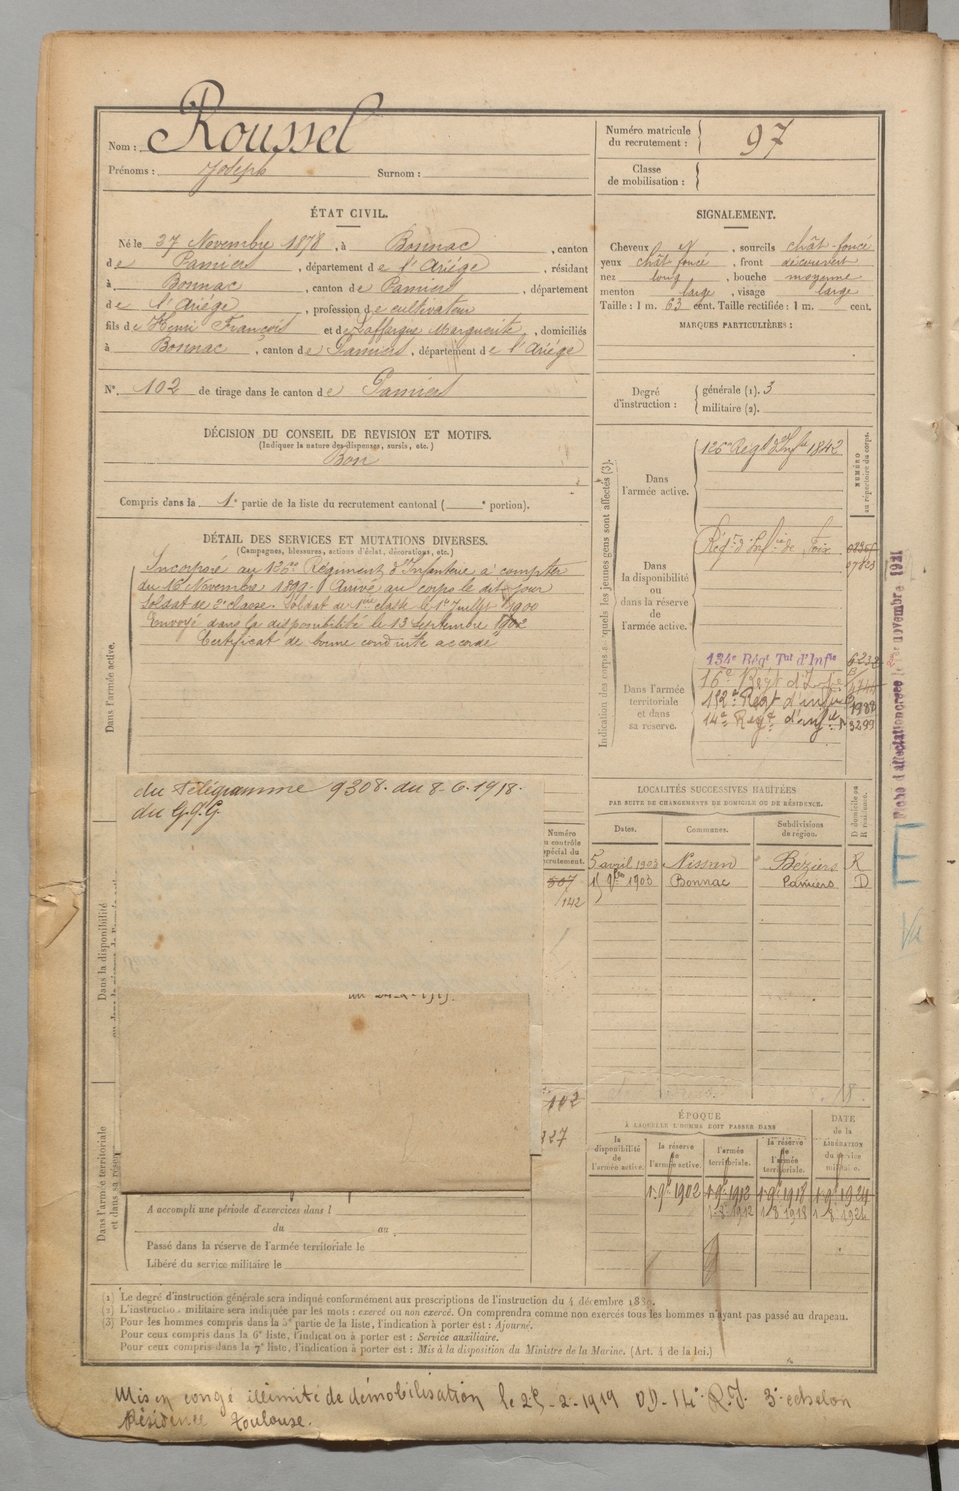 Nom : Roussel
Prénoms : Joseph Surnom :
Numéro matricule du recrutement : 97
Classe de mobilisation :
ÉTAT CIVIL.
Né le 27 Novembre 1878, à Bonnac, canton
de Pamiers, département de l'Ariége, résidant
à Bonnac, canton de Pamiers, département
de l'Ariége, profession de cultivateur
fils de Henri François et de Laffargue Marguerite, domiciliés
à Bonnac, canton de Pamiers, département de l'Ariége
N°. 102 de tirage dans le canton de Pamiers
SIGNALEMENT.
Cheveux N, sourcils chât-foncé
yeux chât foncé, front découvert
nez long, bouche moyenne
menton large, visage large
Taille : 1 m. 63 cent. Taille rectifiée : 1 m. cent.
MARQUES PARTICULIÈRES :
Degré d'instruction : générale (1). 3
militaire (2).
DÉCISION DU CONSEIL DE REVISION ET MOTIFS.
(Indiquer la nature des dispenses, sursis, etc.)
Bon
Compris dans la 1e partie de la liste du recrutement cantonal ( e portion).
DÉTAIL DES SERVICES ET MUTATIONS DIVERSES.
(Campagnes, blessures, actions d'éclat, décorations, etc.)
Dans l'armée active.
Incorporé au 126me Régiment d'Infanterie à compter
du 16 Novembre 1899. Arrivé au corps le dit jour
Soldat de 2e classe. Soldat de 1ère classe le 1er Juillet 1900
Envoyé dans la disponibilité le 13 Septembre 1902
Certificat de bonne conduite accordé
du télégramme 9308. du 8-6-1918.
du G.Q.G
Dans la disponibilité
Dans l'armée territoriale
Indication des corps auxquels les jeunes gens sont affectés (3).
NUMÉRO au répertoire du corps.
Dans l'armée active.
126me Régt d'Infie 1842
Dans la disponibilité ou dans la réserve de l'armée active.
Régt d'Infie de Foix
07823
Dans l'armée territoriale et dans sa réserve.
134e Régt Tal d'Infie 6232
16e Régt d'Infie
112e Régt d'infie
14e Régt d'infie 3299
Fiche d'affectation créée le 1er novembre 1921
LOCALITÉS SUCCESSIVES HABITÉES
PAR SUITE DE CHANGEMENTS DE DOMICILE OU DE RÉSIDENCE.
Dates. Communes. Subdivisions de région. D domicile ou R résidence.
5 avril 1903 Nissan Béziers R
15 9bre 1903 Bonnac Pamiers D
Numéro
507
142
102
327
ÉPOQUE
À LAQUELLE L'HOMME DOIT PASSER DANS
DATE de la LIBÉRATION du service militaire.
la disponibilité de l'armée active. la réserve de l'armée active. l'armée territoriale. la réserve de l'armée territoriale.
1.9bre 1902 1.9bre 1912 1.9bre 1918 1.9bre 1924
1.8.1912 1.8.1918 1.8.1924
A accompli une période d'exercices dans l
du au
Passé dans la réserve de l'armée territoriale le
Libéré du service militaire le
(1) Le degré d'instruction générale sera indiqué conformément aux prescriptions de l'instruction du 4 décembre 1889.
(2) L'instruction militaire sera indiquée par les mots : exercé ou non exercé. On comprendra comme non exercés tous les hommes n'ayant pas passé au drapeau.
(3) Pour les hommes compris dans la 5e partie de la liste, l'indication à porter est : Ajourné.
Pour ceux compris dans la 6e liste, l'indication à porter est : Service auxiliaire.
Pour ceux compris dans la 7e liste, l'indication à porter est : Mis à la disposition du Ministre de la Marine. (Art. 4 de la loi.)
Mis en congé illimité de démobilisation le 25-2-1919 DD-14e R.I. 3e echelon
Résidence Toulouse.